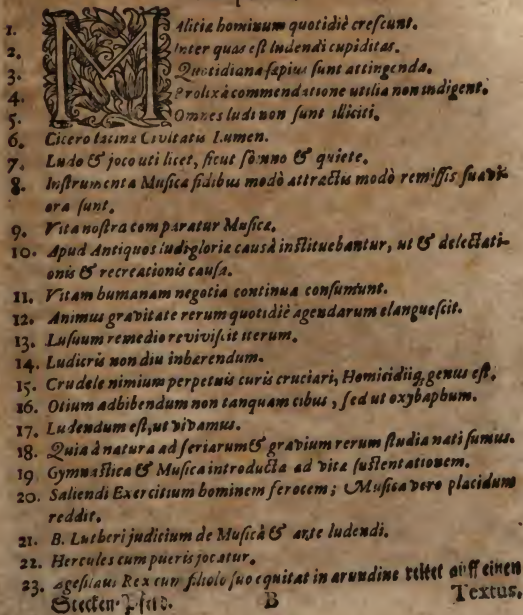 1. Malitia hominum quotidiè crescunt.
2. Inter quas est ludendi cupiditas.
3. Quotidiana sæpius sunt attingenda.
4. Prolixâ commendatione utilia non indigent.
5. Omnes ludi non sunt illiciti.
6. Cicero latinæ Civitatis Lumen.
7. Ludo & joco uti licet, sicut somno & quiete.
8. Instrumenta Musica fidibus modò attractis modò remissis suavi-
ora sunt.
9. Vita nostra comparatur Musicæ.
10. Apud Antiquos ludi gloriæ causâ instituebantur, ut & delectati-
onis & recreationis causa.
11. Vitam humanam negotia continua consumunt.
12. Animus gravitate rerum quotidiè agendarum elanguescit.
13. Lusuum remedio reviviscit iterum.
14. Ludicris non diu inhærendum.
15. Crudele nimium perpetuis curis cruciari, Homicidiiq; genus est.
16. Otium adhibendum non tanquam cibus, sed ut oxybaphum.
17. Ludendum est, ut vivamus.
18. Quia à natura ad seriarum & gravium rerum studia nati sumus.
19 Gymnastica & Musica introducta ad vitæ sustentationem.
20. Saliendi Exercitium hominem ferocem; Musica vero placidum
reddit.
21. B. Lutheri judicium de Musicâ & arte ludendi.
22. Hercules cum pueris jocatur.
23. Agesilaus Rex cum filiolo suo equitat in arundine reitet auff einen
Stecken-Pferd.
B
Textus,